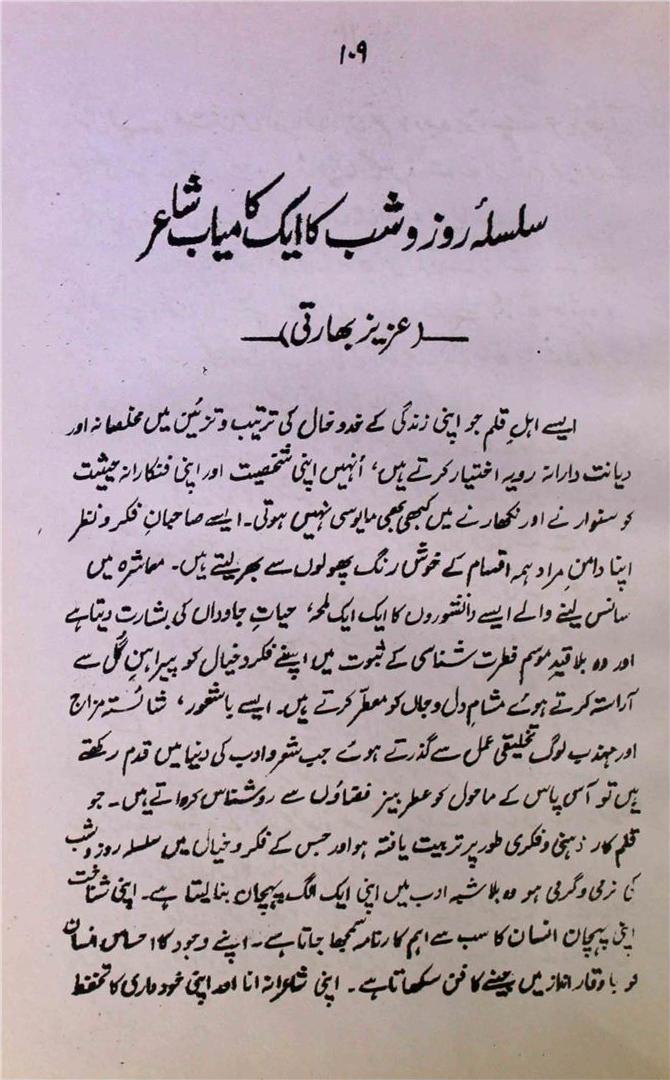 ۱۰۹
سلسلۂ روز و شب کا ایک کامیاب شاعر
(عزیز بھارتی)
ایسے اہلِ قلم جو اپنی زندگی کے خدوخال کی ترتیب و تزئین میں مخلصانہ اور
دیانت دارانہ رویہ اختیار کرتے ہیں، اُنہیں اپنی شخصیت اور اپنی فنکارانہ حیثیت
کو سنوارنے اور نکھارنے میں کبھی بھی مایوسی نہیں ہوتی۔ ایسے صاحبانِ فکر و نظر
اپنا دامنِ مراد ہمہ اقسام کے خوش رنگ پھولوں سے بھر لیتے ہیں۔ معاشرہ میں
سانس لینے والے ایسے دانشوروں کا ایک ایک لمحہ، حیاتِ جاوداں کی بشارت دیتا ہے
اور وہ بلا قیدِ موسم فطرت شناسی کے ثبوت میں اپنے فکر و خیال کو پیراہنِ گُلی سے
آراستہ کرتے ہوئے مشامِ دل و جاں کو معطّر کرتے ہیں۔ ایسے باشعور، شائستہ مزاج
اور مہذب لوگ تخلیقی عمل سے گذرتے ہوئے جب شعر و ادب کی دنیا میں قدم رکھتے
ہیں تو آس پاس کے ماحول کو عطر بیز فضاؤں سے روشناس کرواتے ہیں۔ جو
قلم کار ذہنی و فکری طور پر تربیت یافتہ ہو اور جس کے فکر و خیال میں سلسلہ روز و شب
کی نرمی و گرمی ہو وہ بلا شبہ ادب میں اپنی ایک الگ پہچان بنا لیتا ہے۔ اپنی شناخت
اپنی پہچان انسان کا سب سے اہم کارنامہ سمجھا جاتا ہے۔ اپنے وجود کا احساس انسان
کو باوقار انداز میں جینے کا فن سکھاتا ہے۔ اپنی شاعرانہ انا اور اپنی خودداری کا تحفظ